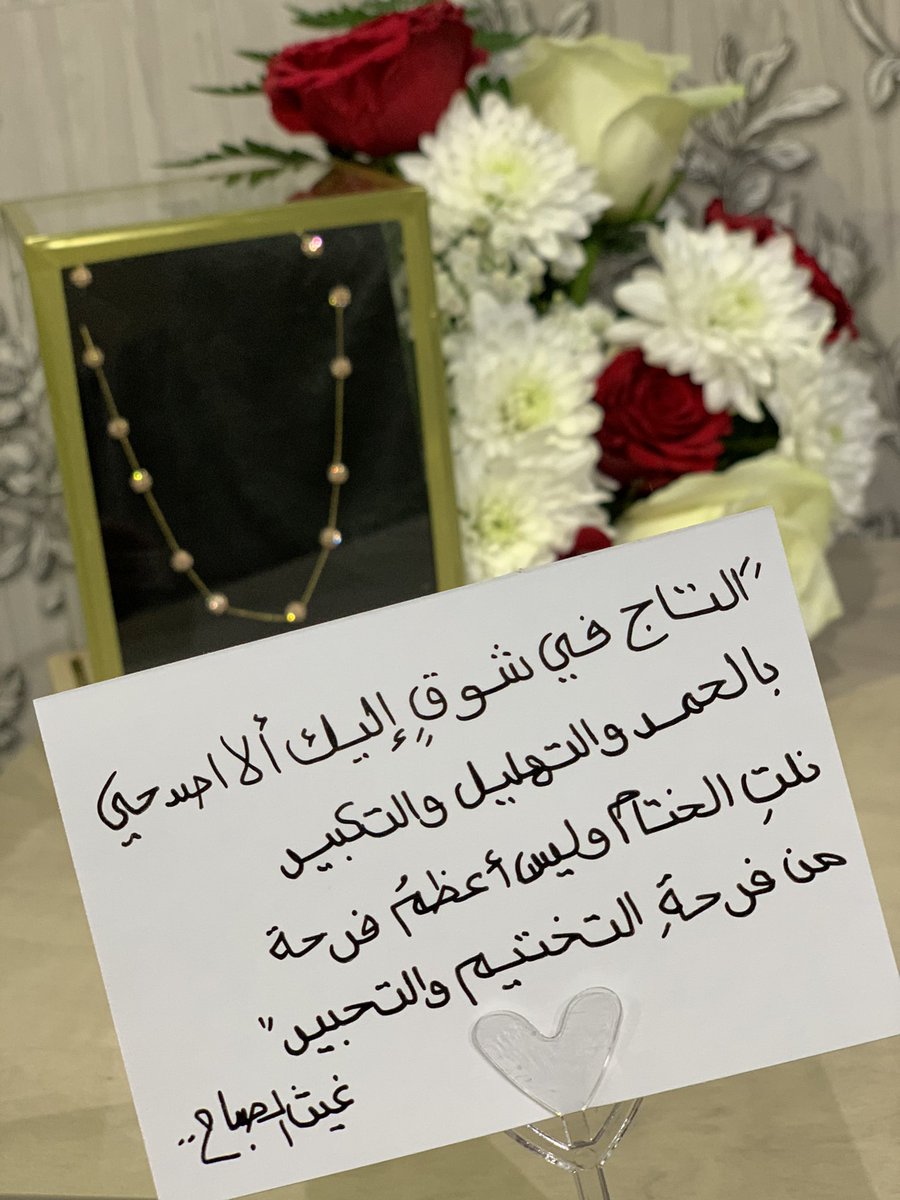 "التاج في شوقٍ إليك ألا اصدحي
بالحمد والتهليل والتكبير
نلتِ الختام وليس أعظمُ فرحة
من فرحةِ التختيم والتحبير"
غيث الصباح..